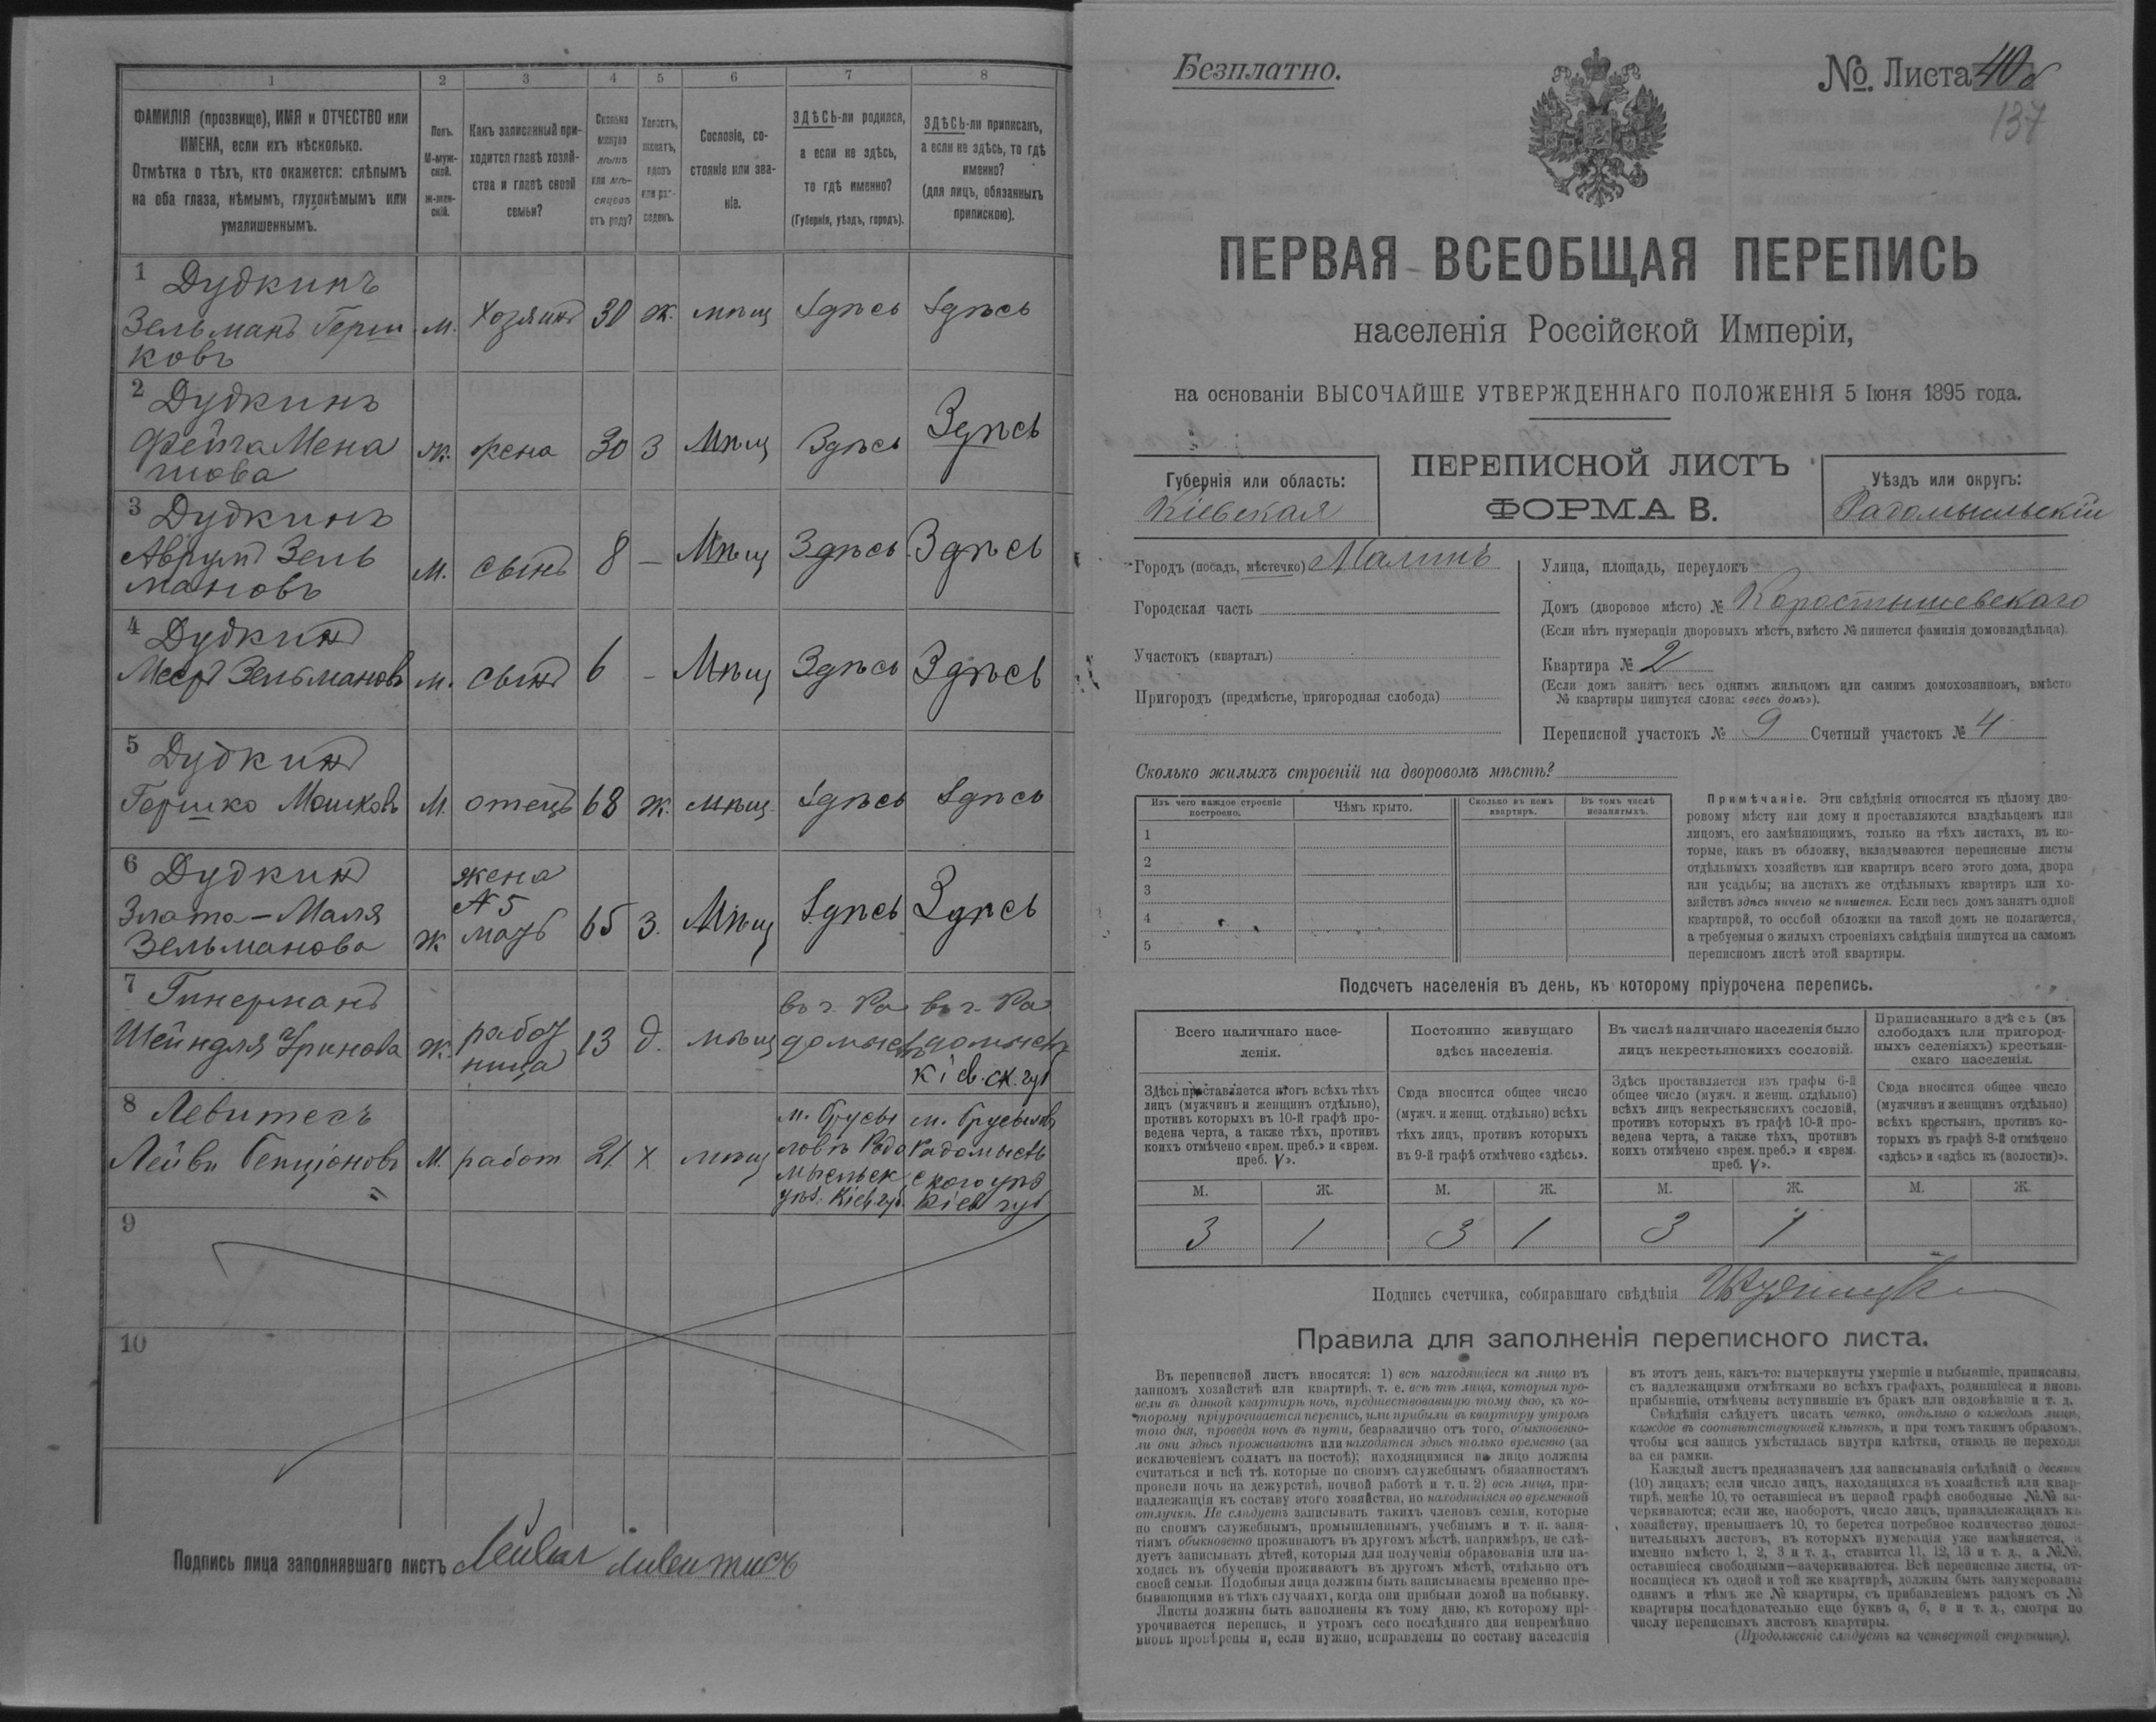 1 2 3 4 5 6 7 8
ФАМИЛІЯ (прозвище), ИМЯ и ОТЧЕСТВО или
ИМЕНА, если ихъ нѣсколько.
Отмѣтка о тѣхъ, кто окажется: слѣпымъ
на оба глаза, нѣмымъ, глухонѣмымъ или
умалишеннымъ.
Полъ.
М-муж-
ской.
Ж-жен-
скій.
Какъ записанный при-
ходится главѣ хозяй-
ства и главѣ своей
семьи?
Сколько
минуло
лѣтъ
или мѣ-
сяцевъ
отъ роду?
Холостъ,
женатъ,
вдовъ
или раз-
веденъ.
Сословіе, со-
стояніе или зва-
ніе.
ЗДѢСЬ-ли родился,
а если не здѣсь,
то гдѣ именно?
(Губернія, уѣздъ, городъ).
ЗДѢСЬ-ли приписанъ,
а если не здѣсь, то гдѣ
именно?
(для лицъ, обязанныхъ
припискою).
1 Дудкинъ
Зельманъ Герш
ковъ
м. хозяинъ 30 ж. мѣщ Здѣсь Здѣсь
2 Дудкинъ
Фейга Мена
шова
ж. жена 30 З Мѣщ Здѣсь Здѣсь
3 Дудкинъ
Аврумъ Зель
мановъ
м. сынъ 8 – Мѣщ Здѣсь Здѣсь
4 Дудкинъ
Мееръ Зельмановъ м. сынъ 6 – Мѣщ Здѣсь Здѣсь
5 Дудкинъ
Гершко Мошковъ М. отецъ 68 ж. мѣщ. Здѣсь Здѣсь
6 Дудкинъ
Злата–Маля
Зельманова
ж
жена
№ 5
мать
65 З. Мѣщ Здѣсь Здѣсь
7 Гинерманъ
Шейндля Уринова ж. работ
ница
13 д. мѣщ
въ г. Ра
домысл
въ г. Ра
домысл
Кіев. ск. губ
8 Левитесъ
Лейви Бенціоновъ М. работ 21 х мѣщ
м. Брусы
ловъ Радо
мысльск
уѣз. Кіев. губ.
м. Брусыловъ
Радомысль
скаго уѣз
Кіев губ
9
10
Подпись лица заполнявшаго листъ Лейви Ливитисъ
Безплатно.
№. Листа 40б
137
ПЕРВАЯ ВСЕОБЩАЯ ПЕРЕПИСЬ
населенія Россійской Имперіи,
на основаніи ВЫСОЧАЙШЕ УТВЕРЖДЕННАГО ПОЛОЖЕНІЯ 5 Іюня 1895 года.
Губернія или область:
Кіевская
ПЕРЕПИСНОЙ ЛИСТЪ
ФОРМА В.
Уѣздъ или округъ:
Радомысльскій
Городъ (посадъ, мѣстечко) Малинъ
Городская часть
Участокъ (кварталъ)
Пригородъ (предмѣстье, пригородная слобода)
Улица, площадь, переулокъ
Домъ (дворовое мѣсто) № Коростышевскаго
(Если нѣтъ нумераціи дворовыхъ мѣстъ, вмѣсто № пишется фамилія домовладѣльца).
Квартира № 2
(Если домъ занятъ весь однимъ жильцомъ или самимъ домохозяиномъ, вмѣсто
№ квартиры пишутся слова: «весь домъ»).
Переписной участокъ № 9 Счетный участокъ № 4
Сколько жилыхъ строеній на дворовомъ мѣстѣ?
Изъ чего каждое строеніе
построено.
Чѣмъ крыто.
Сколько въ немъ
квартиръ.
Въ томъ числѣ
незанятыхъ.
1
2
3
4
5
Примѣчаніе. Эти свѣдѣнія относятся къ цѣлому дво-
ровому мѣсту или дому и проставляются владѣльцемъ или
лицомъ, его замѣняющимъ, только на тѣхъ листахъ, въ ко-
торые, какъ въ обложку, вкладываются переписные листы
отдѣльныхъ хозяйствъ или квартиръ всего этого дома, двора
или усадьбы; на листахъ же отдѣльныхъ квартиръ или хо-
зяйствъ здѣсь ничего не пишется. Если весь домъ занятъ одной
квартирой, то особой обложки на такой домъ не полагается,
а требуемыя о жилыхъ строеніяхъ свѣдѣнія пишутся на самомъ
переписномъ листѣ этой квартиры.
Подсчетъ населенія въ день, къ которому пріурочена перепись.
Всего наличнаго насе-
ленія.
Постоянно живущаго
здѣсь населенія.
Въ числѣ наличнаго населенія было
лицъ некрестьянскихъ сословій.
Приписаннаго здѣсь (въ
слободахъ или пригород-
ныхъ селеніяхъ) крестьян-
скаго населенія.
Здѣсь проставляется итогъ всѣхъ тѣхъ
лицъ (мужчинъ и женщинъ отдѣльно),
противъ которыхъ въ 10-й графѣ про-
ведена черта, а также тѣхъ, противъ
коихъ отмѣчено «врем. преб.» и «врем.
преб. V».
Сюда вносится общее число
(мужч. и женщ. отдѣльно) всѣхъ
тѣхъ лицъ, противъ которыхъ
въ 9-й графѣ отмѣчено «здѣсь».
Здѣсь проставляется изъ графы 6-й
общее число (мужч. и женщ. отдѣльно)
всѣхъ лицъ некрестьянскихъ сословій,
противъ которыхъ въ графѣ 10-й про-
ведена черта, а также тѣхъ, противъ
коихъ отмѣчено «врем. преб.» и «врем.
преб. V».
Сюда вносится общее число
(мужчинъ и женщинъ отдѣльно)
всѣхъ крестьянъ, противъ ко-
торыхъ въ графѣ 8-й отмѣчено
«здѣсь» и «здѣсь къ (волости)».
М. Ж. М. Ж. М. Ж. М. Ж.
3 1 3 1 3 1
Подпись счетчика, собиравшаго свѣдѣнія
Правила для заполненія переписного листа.
Въ переписной листъ вносятся: 1) всѣ находящіеся на лицо въ
данномъ хозяйствѣ или квартирѣ, т. е. всѣ тѣ лица, которыя про-
вели въ данной квартирѣ ночь, предшествовавшую тому дню, къ ко-
торому пріурочивается перепись, или прибыли въ квартиру утромъ
того дня, проведя ночь въ пути, безразлично отъ того, обыкновенно-
ли они здѣсь проживаютъ или находятся здѣсь только временно (за
исключеніемъ солдатъ на постоѣ); находящимися на лицо должны
считаться и всѣ тѣ, которые по своимъ служебнымъ обязанностямъ
провели ночь на дежурствѣ, ночной работѣ и т. п. 2) всѣ лица, при-
надлежащія къ составу этого хозяйства, но находящіяся во временной
отлучкѣ. Не слѣдуетъ записывать такихъ членовъ семьи, которые
по своимъ служебнымъ, промышленнымъ, учебнымъ и т. п. заня-
тіямъ обыкновенно проживаютъ въ другомъ мѣстѣ, напримѣръ, не слѣ-
дуетъ записывать дѣтей, которыя для полученія образованія или на-
ходясь въ обученіи проживаютъ въ другомъ мѣстѣ, отдѣльно отъ
своей семьи. Подобныя лица должны быть записываемы временно пре-
бывающими въ тѣхъ случаяхъ, когда они прибыли домой на побывку.
Листы должны быть заполнены къ тому дню, къ которому прі-
урочивается перепись, и утромъ сего послѣдняго дня непремѣнно
вновь провѣрены и, если нужно, исправлены по составу населенія
въ этотъ день, какъ-то: вычеркнуты умершіе и выбывшіе, приписаны,
съ надлежащими отмѣтками во всѣхъ графахъ, родившіеся и вновь
прибывшіе, отмѣчены вступившіе въ бракъ или овдовѣвшіе и т. д.
Свѣдѣнія слѣдуетъ писать четко, отдѣльно о каждомъ лицѣ,
каждое въ соотвѣтствующей клѣткѣ, и при томъ такимъ образомъ,
чтобы вся запись умѣстилась внутри клѣтки, отнюдь не переходя
за ея рамки.
Каждый листъ предназначенъ для записыванія свѣдѣній о десяти
(10) лицахъ; если число лицъ, находящихся въ хозяйствѣ или квар-
тирѣ, менѣе 10, то оставшіеся въ первой графѣ свободные №№ за-
черкиваются; если же, наоборотъ, число лицъ, принадлежащихъ къ
хозяйству, превышаетъ 10, то берется потребное количество допол-
нительныхъ листовъ, въ которыхъ нумерація уже измѣняется, а
именно вмѣсто 1, 2, 3 и т. д., ставится 11, 12, 13 и т. д., а №№,
оставшіеся свободными—зачеркиваются. Всѣ переписные листы, от-
носящіеся къ одной и той же квартирѣ, должны быть занумерованы
однимъ и тѣмъ же № квартиры, съ прибавленіемъ рядомъ съ №
квартиры послѣдовательно еще буквъ а, б, в и т. д., смотря по
числу переписныхъ листовъ квартиры.
(Продолженіе слѣдуетъ на четвертой страницѣ).